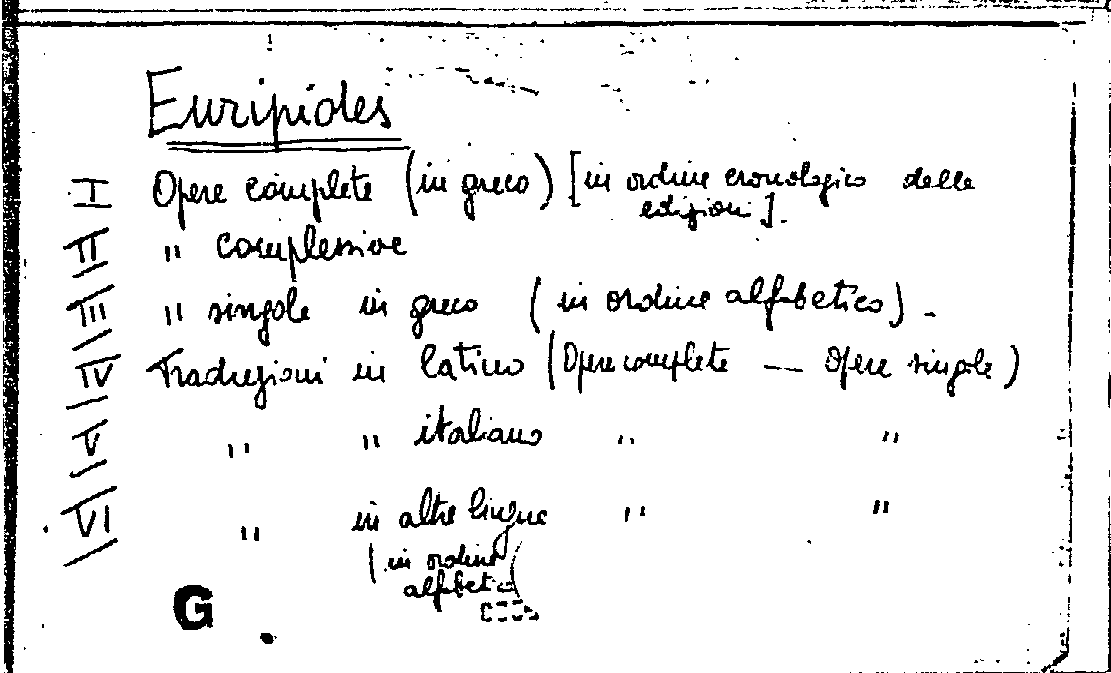 Euripides
I Opere complete (in greco) [in ordine cronologico delle
edizioni].
II " complessive
III " singole in greco (in ordine alfabetico).
IV Traduzioni in latino (Opere complete — Opere singole)
V " " italiano " "
VI " in altre lingue " "
(in ordine
alfabetic
G